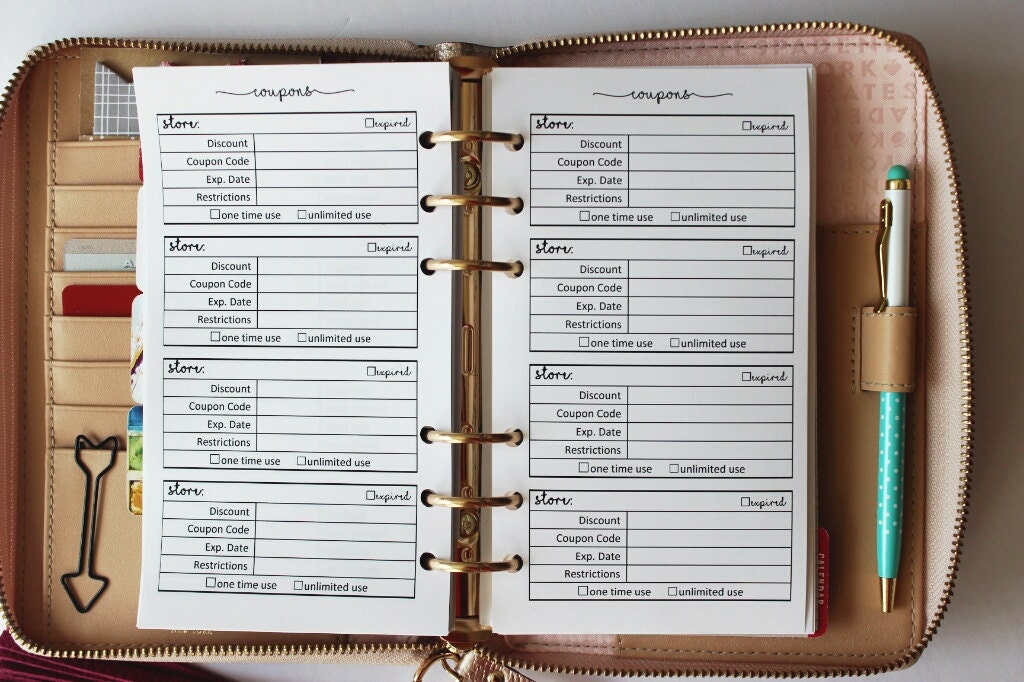 coupons
store: ☐expired
Discount
Coupon Code
Exp. Date
Restrictions
☐one time use ☐unlimited use
store: ☐expired
Discount
Coupon Code
Exp. Date
Restrictions
☐one time use ☐unlimited use
store: ☐expired
Discount
Coupon Code
Exp. Date
Restrictions
☐one time use ☐unlimited use
store: ☐expired
Discount
Coupon Code
Exp. Date
Restrictions
☐one time use ☐unlimited use
coupons
store: ☐expired
Discount
Coupon Code
Exp. Date
Restrictions
☐one time use ☐unlimited use
store: ☐expired
Discount
Coupon Code
Exp. Date
Restrictions
☐one time use ☐unlimited use
store: ☐expired
Discount
Coupon Code
Exp. Date
Restrictions
☐one time use ☐unlimited use
store: ☐expired
Discount
Coupon Code
Exp. Date
Restrictions
☐one time use ☐unlimited use
CALENDAR